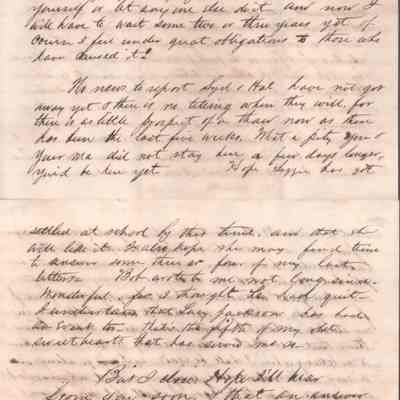 yourself or let any one else do it and now I
will have to wait some two or three years yet of
course I feel under great obligations to those who
have caused it!
No news to report Syd & Hal have not got
away yet & there is no telling when they will, for
there is as little prospect of a thaw now as there
has been the last five weeks. What a pity you &
your ma did not stay here a few days longer,
you'd be here yet. Hope has got
settled at school by this time, and that she
will like it. I also hope she may find time
to answer some three or four of my last
letters. Bob wrote to me not long since.
Wonderful, for I thought he had quit
that Lucy Jackson has had
that's the fifth of my old
sweethearts that has served me so.
But I close Hope I'll hear
from you soon & that an answer